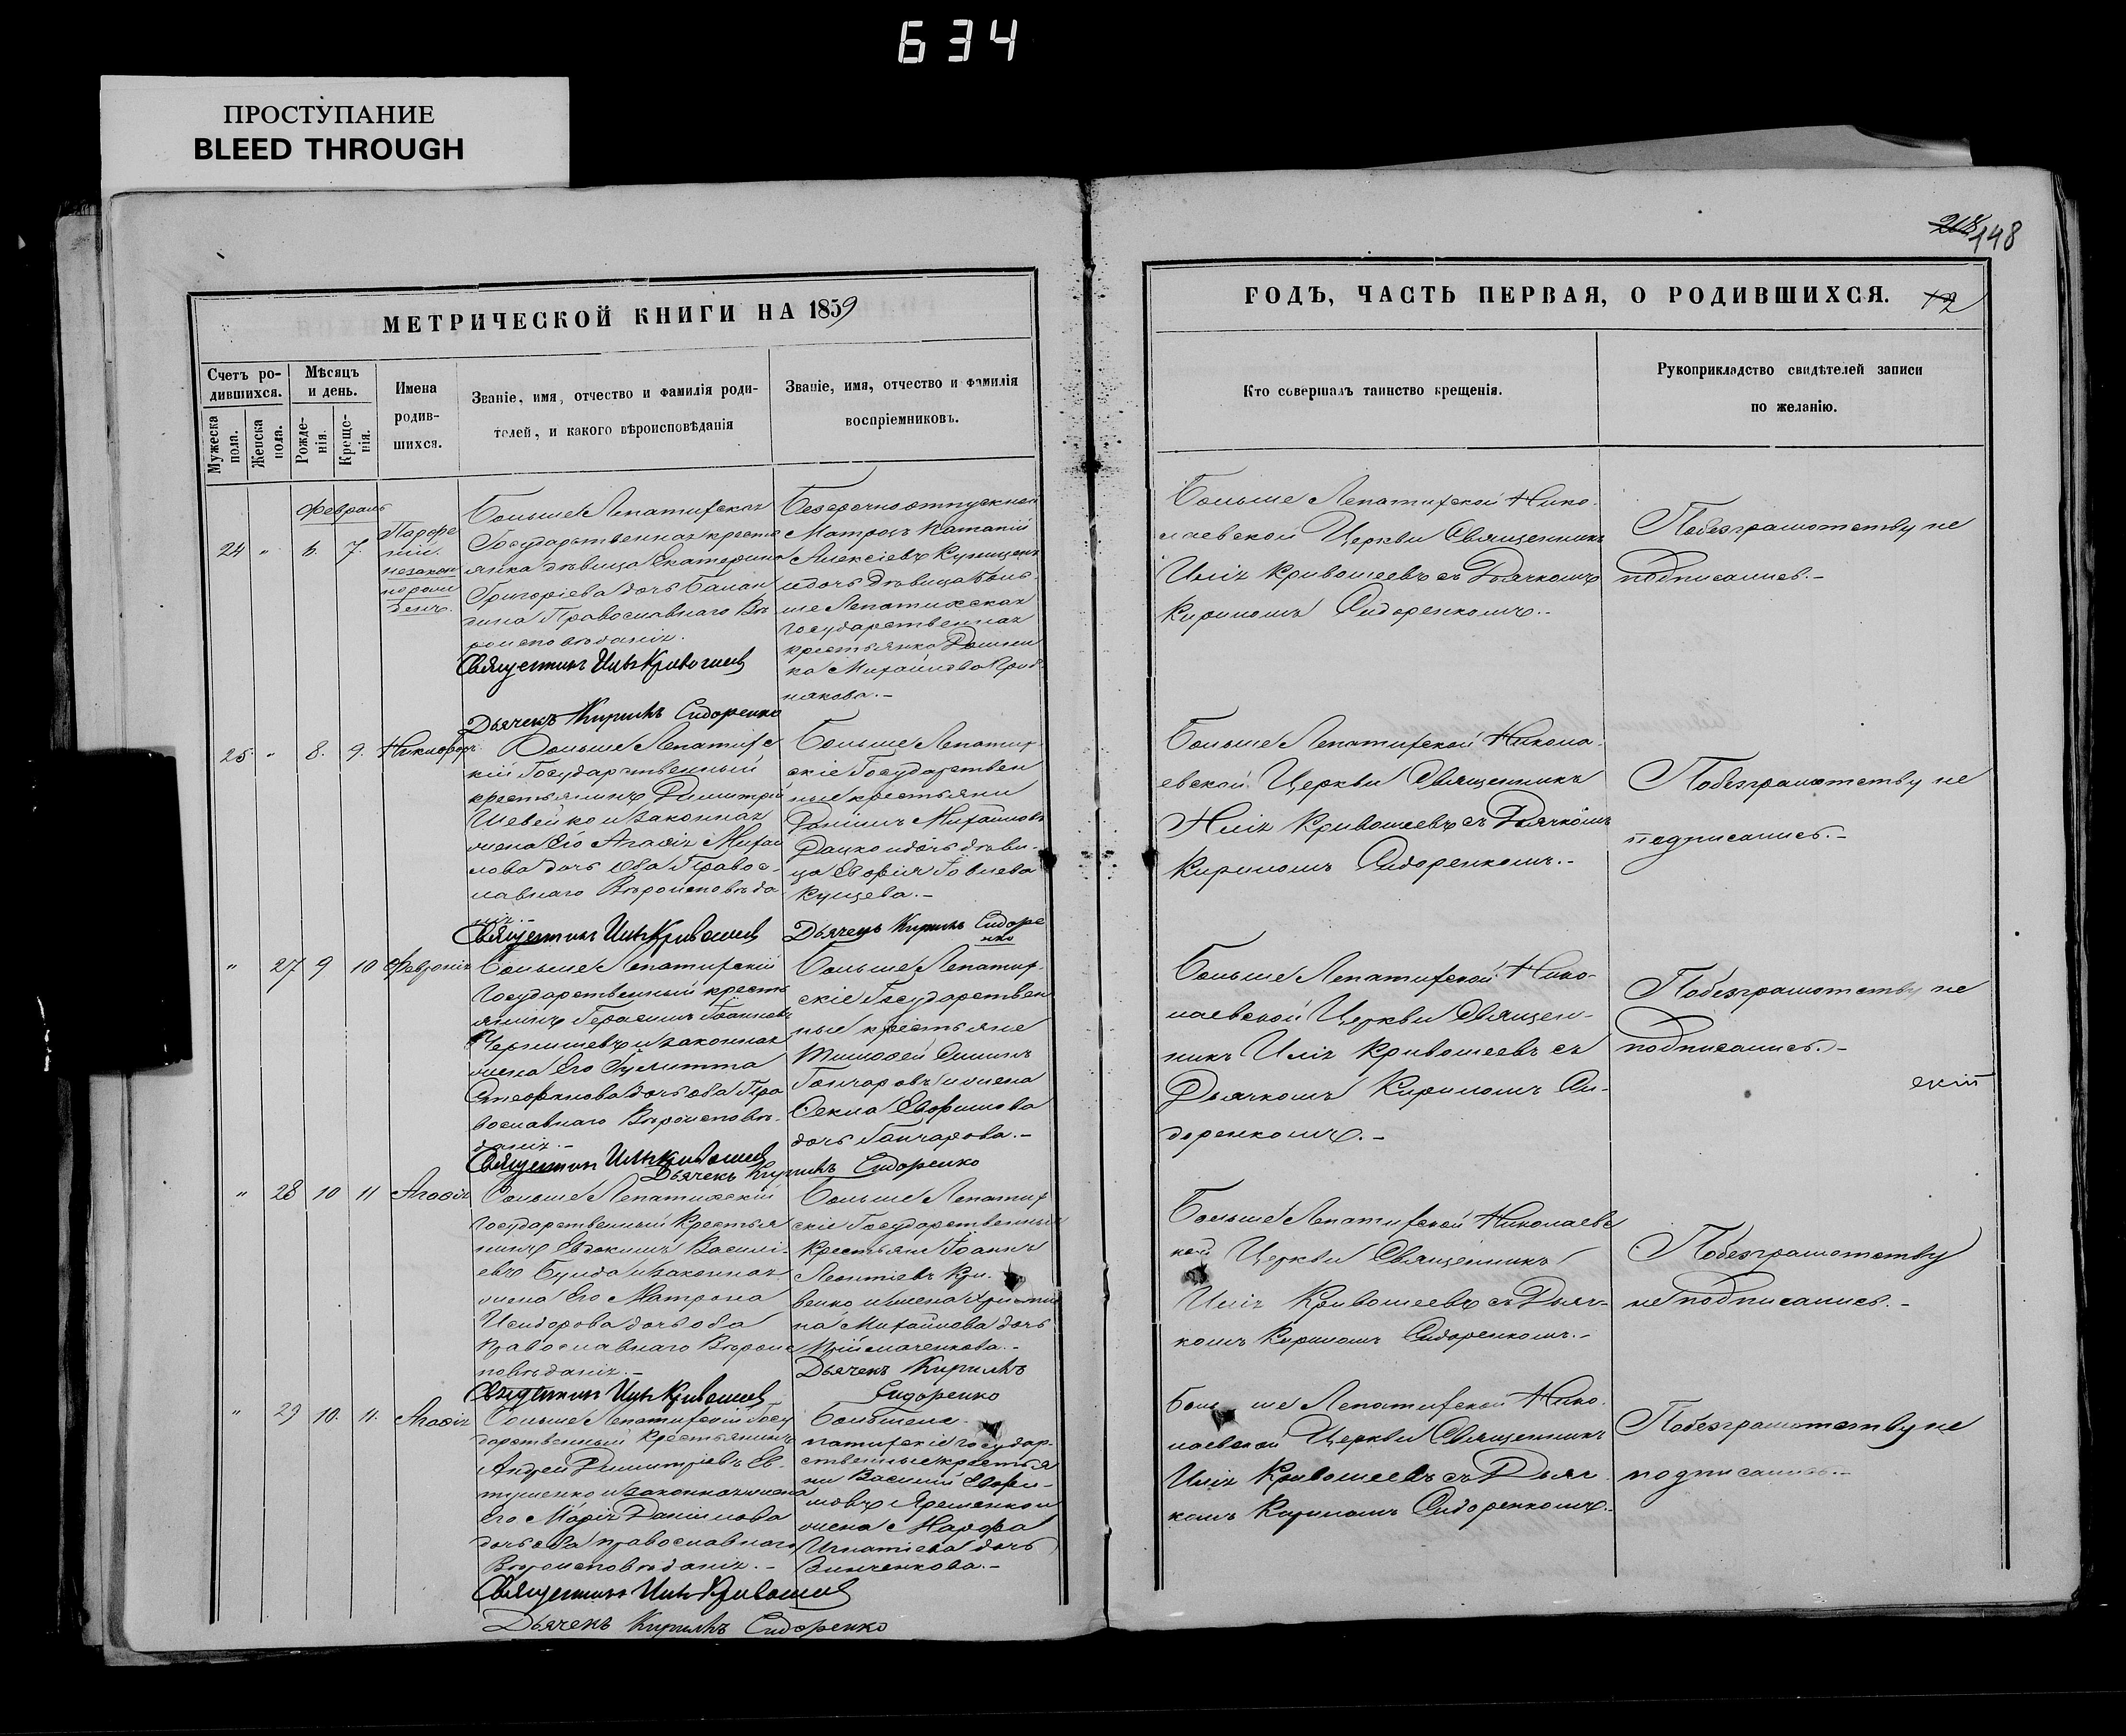 634
ПРОСТУПАНИЕ
BLEED THROUGH
218 148
МЕТРИЧЕСКОЙ КНИГИ НА 1859
Счетъ ро-
дившихся.
Мужеска
пола.
Женска
пола.
Мѣсяцъ
и день.
Рожде-
нія.
Креще-
нія.
Имена
родив-
шихся.
Званіе, имя, отчество и фамилія роди-
телей, и какого вѣроисповѣданія
Званіе, имя, отчество и фамилія
воспріемниковъ.
Февраль
24 " 6. 7.
Парфе
ній.
незакон
норож
денъ.
Больше Лепатихская
Государственная крестья
янка дѣвица Екатерина
Григоріева дочь Балан
дина Православнаго Вѣ
роисповѣданія.
Священникъ Илія Кривошеев
Дьячекъ Кирилъ Сидоренко
Безсрочноотпускной
Матросъ
Алексіевъ
и дочь дѣвица Боль-
ше Лепатихская
государственная
крестьянка Домни
ка Михайлова
някова.-
25. " 8. 9. Никифоръ
Больше Лепатихс
кій Государственный
крестьянинъ Димитрій
Шевейко и законная
жена Его Агафія Михай
лова дочь Оба Правос-
лавнаго Вѣроисповѣда
нія.-
Священникъ Илія Кривошеев
Больше Лепатих-
скіе Государствен
ные крестьяни
Даніилъ Михайловъ
Дацко и дочь дѣви-
ца Евфимія Іовлева
Кущева.-
Дьячекъ Кирилъ Сидоре
нко
" 27 9 10 Февронія
Больше Лепатихскій
Государственный кресть
янинъ Герасимъ Іоанновъ
Чернишевъ и законная
жена Его Іулитта
Стефанова дочь оба Пра
вославнаго Вѣроисповѣ-
данія.-
Священникъ Илія Кривошеев
Дьячекъ Кирилъ Сидоренко
Больше Лепатих-
скіе Государствен
ные крестьяне
Тимофей
Гончаровъ и жена
Фекла Евфимова
дочь Гончарова.-
" 28 10 11 Агафія
Больше Лепатихскій
государственный Крестья
нинъ Евдокимъ Василі-
евъ и законная
жена Его Матрона
Исидорова дочь оба
Православнаго Вѣроис
повѣданія.-
Священникъ Илія Кривошеев
Больше Лепатих
скіе Государственные
Крестьяне Іоаннъ
Леонтіевъ Кри-
венко и жена Христи
на Михайлова дочь
Дьячекъ Кирилъ
Сидоренко
" 29 10. 11. Агафія
Больше Лепатихскій Госу
дарственный Крестьянинъ
Андрей Димитріевъ Ев-
тушенко и законная жена
Его Марія Даніилова
дочь оба православнаго
Вѣроисповѣданія.-
Священникъ Илія Кривошеев
Дьячекъ Кирилъ Сидоренко
Больше Ле-
патихскіе государ-
ственные крестья
ни Василій Евфи-
мовъ Яременко и
жена Марфа
Игнатіева дочь
Зинченкова.-
ГОДЪ, ЧАСТЬ ПЕРВАЯ, О РОДИВШИХСЯ. 12
Кто совершалъ таинство крещенія.
Рукоприкладство свидѣтелей записи
по желанію.
Больше Лепатихской Нико-
лаевской Церкви Священникъ
Илія Кривошеевъ съ Дьячкомъ
Кириломъ Сидоренкомъ.-
Побезграмотству не
подписались.-
Больше Лепатихской Никола-
евской Церкви Священникъ
Илія Кривошеевъ съ Дьячкомъ
Кириломъ Сидоренкомъ.-
Побезграмотству не
подписались.-
Больше Лепатихской Нико-
лаевской Церкви Священ-
никъ Илія Кривошеевъ съ
Дьячкомъ Кириломъ Си-
доренкомъ.-
Побезграмотству не
подписались.-
скій
Больше Лепатихской Николаевс
кой Церкви Священникъ
Илія Кривошеевъ съ Дьяч-
комъ Кириломъ Сидоренкомъ.-
Побезграмотству
не подписались.-
Боль ше Лепатихской Нико-
лаевской Церкви Священникъ
Илія Кривошеевъ съ Дьяч
комъ Кириломъ Сидоренкомъ.-
Побезграмотству не
подписались.-